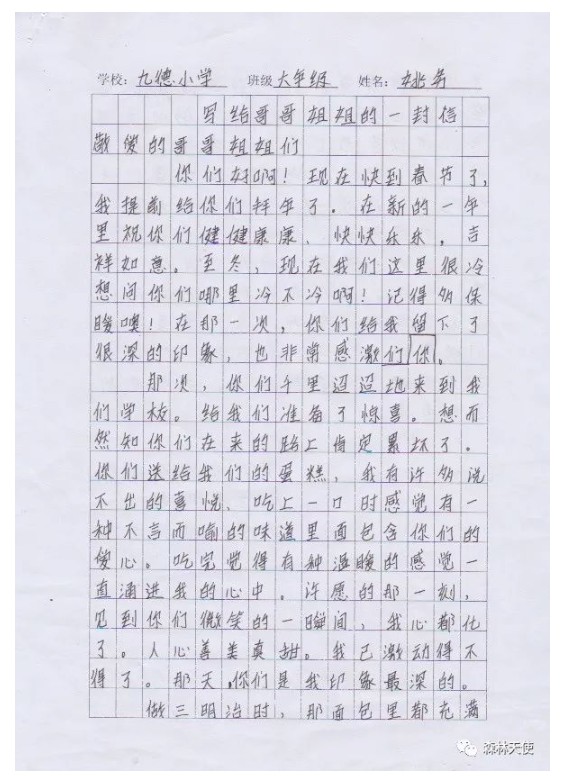 学校：九德小学 班级 六年级 姓名：姚芳
写给哥哥姐姐的一封信
敬爱的哥哥姐姐们
你们好啊！现在快到春节了，
我提前给你们拜年了。在新的一年
里祝你们健健康康、快快乐乐。吉
祥如意。至冬，现在我们这里很冷
想问你们哪里冷不冷啊！记得多保
暖噢！在那一次，你们给我留下了
很深的印象，也非常感激们你。
那次，你们千里迢迢地来到我
们学校。给我们准备了惊喜。想而
然知你们在来的路上肯定累坏了。
你们送给我们的蛋糕，我有许多说
不出的喜悦、吃上一口时感觉有一
种不言而喻的味道里面包含你们的
爱心。吃完觉得有种温暖的感觉一
直涌进我的心中。许愿的那一刻，
见到你们微笑的一瞬间，我心都化
了。人心善美真甜。我已激动得不
得了。那天，你们是我印象最深的。
做三明治时，那面包里都充满
森林天使